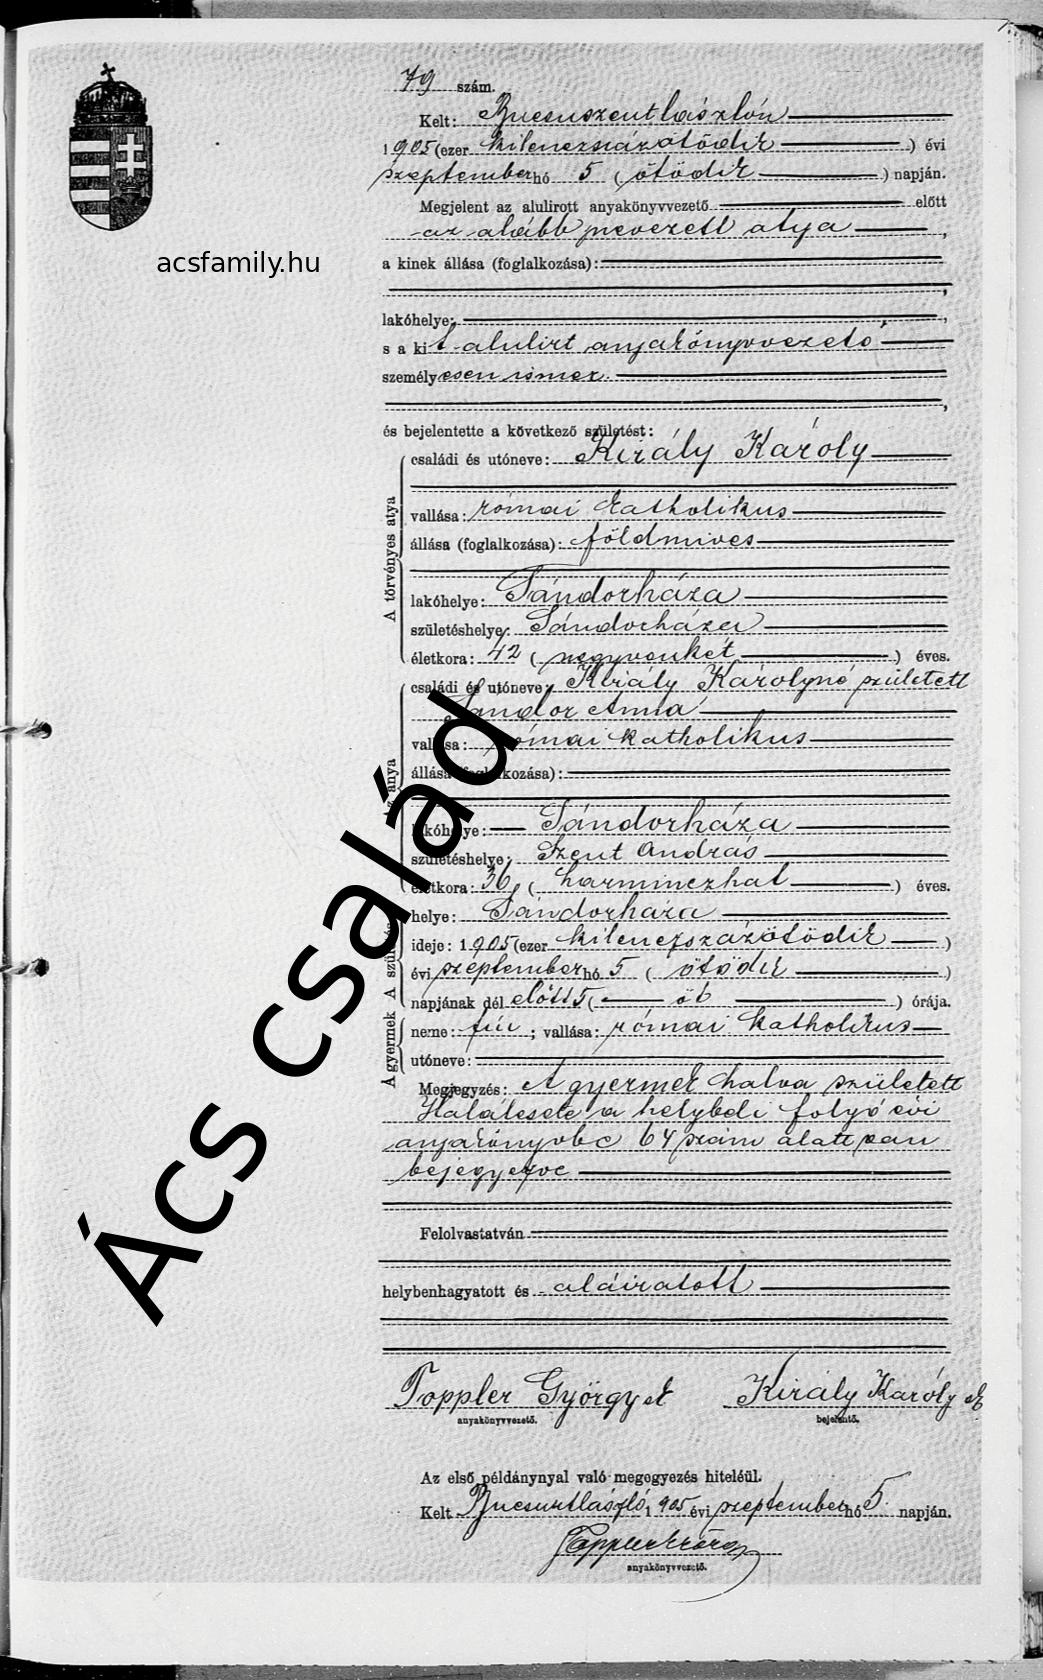 79 szám.
Kelt: Bucsuszentlászlón
1905 (ezer kilenczszázötödik) évi
szeptember hó 5 (ötödik) napján.
Megjelent az alulirott anyakönyvvezető előtt
az alább nevezett atya,
a kinek állása (foglalkozása):
,
lakóhelye: ,
s a kit alulirt anyakönyvvezető
személyesen ismer
,
és bejelentette a következő születést:
A törvényes atya
családi és utóneve: Király Károly
vallása: római katholikus
állása (foglalkozása): földmives
lakóhelye: Sándorháza
születéshelye: Sándorháza
életkora: 42 (negyvenkét) éves.
Az anya
családi és utóneve: Király Károlyné született
Sándor Anna
vallása: római katholikus
állása (foglalkozása):
lakóhelye: Sándorháza
születéshelye: Szent András
életkora: 36 (harminczhat) éves.
A születés
helye: Sándorháza
ideje: 1905 (ezer kilenczszázötödik)
évi szeptember hó 5 (ötödik)
napjának dél előtt 5 (öt) órája.
A gyermek
neme: fiú; vallása: római katholikus
utóneve:
Megjegyzés: A gyermek halva született
Halálesete a helybeli folyó évi
anyakönyvbe 64 szám alatt van
bejegyezve
Felolvastatván
helybenhagyatott és aláiratott
Toppler György sk Király Károly sk
anyakönyvvezető. bejelentő.
Az első példánynyal való megegyezés hiteléül.
Kelt 1905 évi szeptember hó 5 napján.
Toppler György
anyakönyvvezető.
acsfamily.hu
Ács család